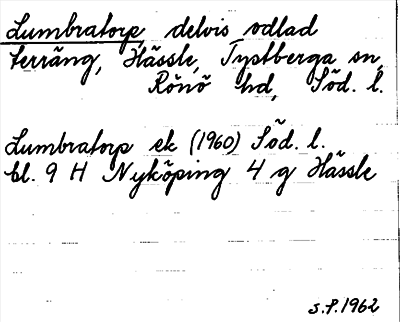 Lumbratorp, delvis odlad
terräng, Hässle, Tystberga sn,
Rönö hd, Söd. l.
Lumbratorp ek (1960) Söd. l.
bl. 9 H Nyköping 4 g Hässle
S.P. 1962